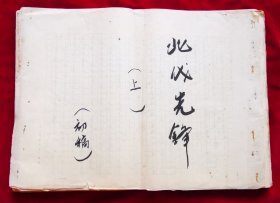 北伐先锋
（上）
（初稿）